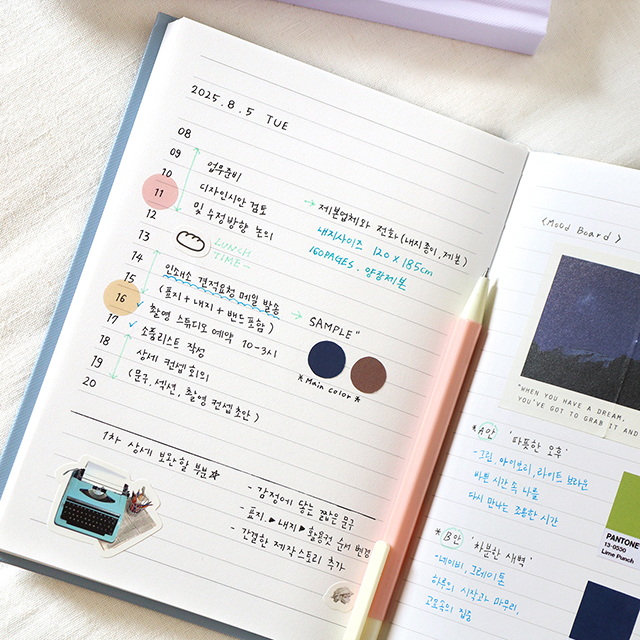 2025. 8. 5 TUE
08
09
10 업무준비
11 디자인시안 검토
12 및 수정방향 논의
→ 제본업체와 전화 (내지종이, 제본)
내지사이즈 120 × 185cm
160PAGES. 양장제본
13
LUNCH
TIME
14
15 인쇄소 견적요청 메일 발송
16 (표지 + 내지 + 밴드포함) → SAMPLE"
17 ✓ 촬영 스튜디오 예약 10-3시
18 ✓ 소품리스트 작성
19 상세 컨셉 회의
20 (문구, 섹션, 촬영 컨셉 초안)
* Main color *
1차 상세 보완할 부분☆
- 감정에 닿는 짧은 문구
- 표지 ▶ 내지 ▶ 활용컷 순서 변경
- 간결한 제작스토리 추가
<Mood Board>
"WHEN YOU HAVE A DREAM,
YOU'VE GOT TO GRAB IT AND
* A안 '따뜻한 오후'
- 크림, 아이보리, 라이트 브라운
바쁜 시간 속 나를
다시 만나는 조용한 시간
PANTONE
13-0550
Lime Punch
* B안 '차분한 새벽'
- 네이비, 그레이톤
하루의 시작과 마무리,
고요속의 집중